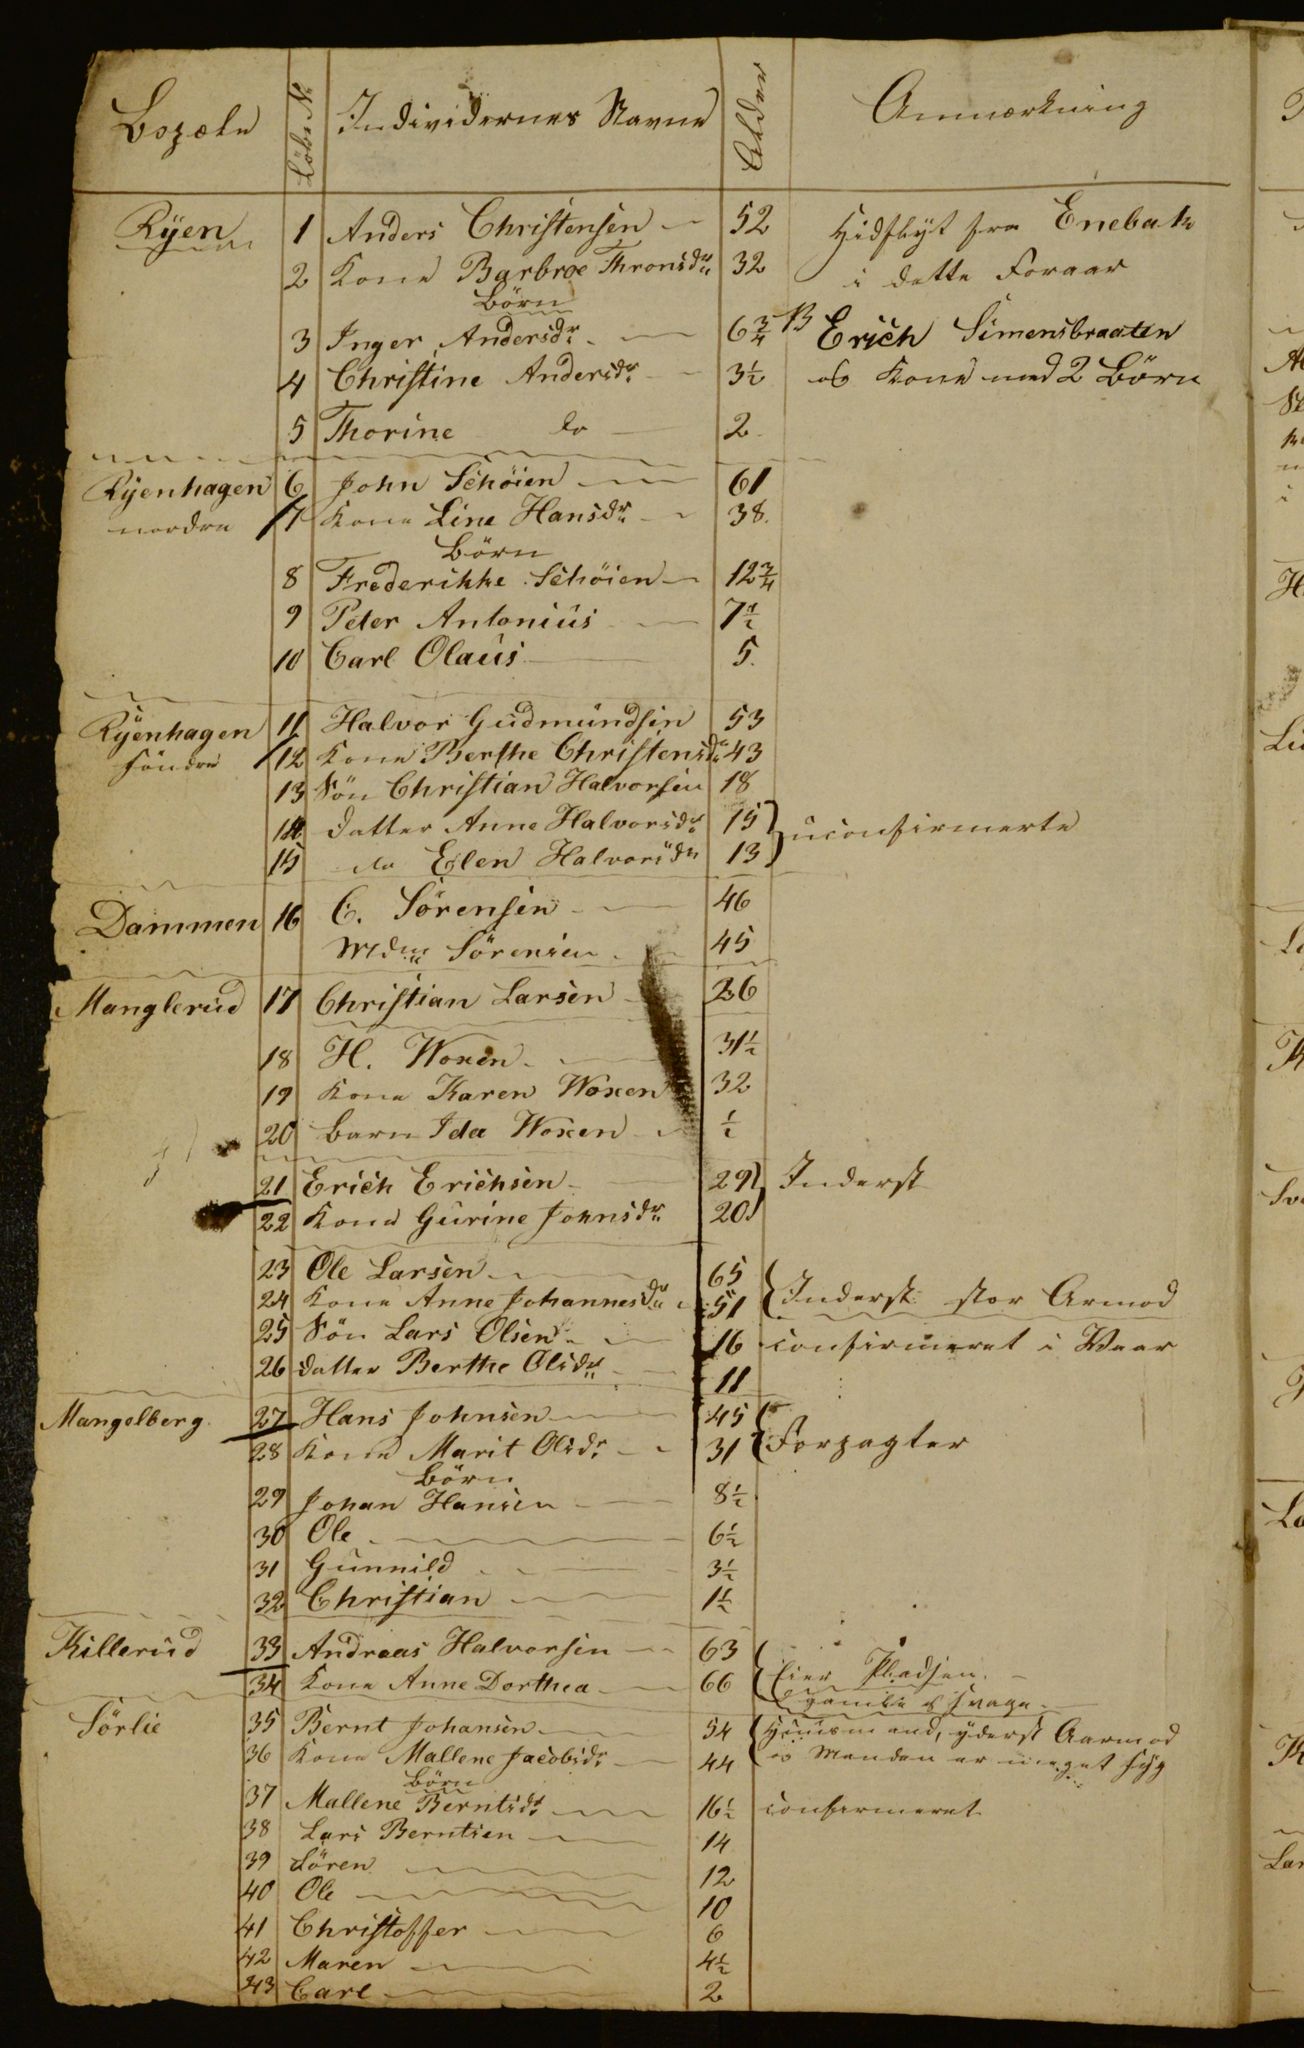 Bopæle Löbe No Individernes Navne Alder Anmærkning
Ryen 1 Anders Christensen 52 Hidflÿt fra Enebak
2 Kone Barbroe Thronsdr 32 i dette Foraar
Börn
3 Inger Andersdr 6 3/4 Erich Simensbraaten
4 Christine Andersdr 3 1/2 og Kone med 2 Börn
5 Thorine do 2
Ryenhagen 6 John Schöien 61
nordre 7 Kone Line Hansdr 38
Börn
8 Frederikke Schöien 12 3/4
9 Peter Antonius 7 1/2
10 Carl Olaus 5
Ryenhagen 11 Halvor Gudmundsen 53
söndre 12 Kone Berthe Christensdr 43
13 Sön Christian Halvorsen 18
14 Datter Anne Halvorsdr 15 uconfirmerte
15 do Elen Halvorsdr 13
Dammen 16 C. Sörensen 46
Mdm Sörensen 45
Manglerud 17 Christian Larsen 26
18 H. Woxen 31 1/2
19 Kone Karen Woxen 32
20 Barn Ida Woxen 1/2
21 Erich Erichsen 29 Inderst
22 Kone Gurine Johnsdr 20
23 Ole Larsen 65
24 Kone Anne Johannesdr 51 Inderst stor Armod
25 Sön Lars Olsen 16 confirmeret i Vaar
26 Datter Berthe Olsdr 11
Mangelberg 27 Hans Johnsen 45
28 Kone Marit Olsdr 31 Forpagter
Börn
29 Johan Hansen 8 1/2
30 Ole 6 1/2
31 Gunnild 3 1/2
32 Christian 1 1/2
Killerud 33 Andreas Halvorsen 63
34 Kone Anne Dorthea 66 Eier Pladsen
gamle & svage
Sörlie 35 Bernt Johansen 54 Huusmand, yderst Aarmod
36 Kone Mallene Jacobsdr 44 og Manden er meget syg
Börn
37 Mallene Berntsdr 16 1/2 confirmeret
38 Lars Berntsen 14
39 Sören 12
40 Ole 10
41 Christoffer 6
42 Maren 4 1/2
43 Carl 2